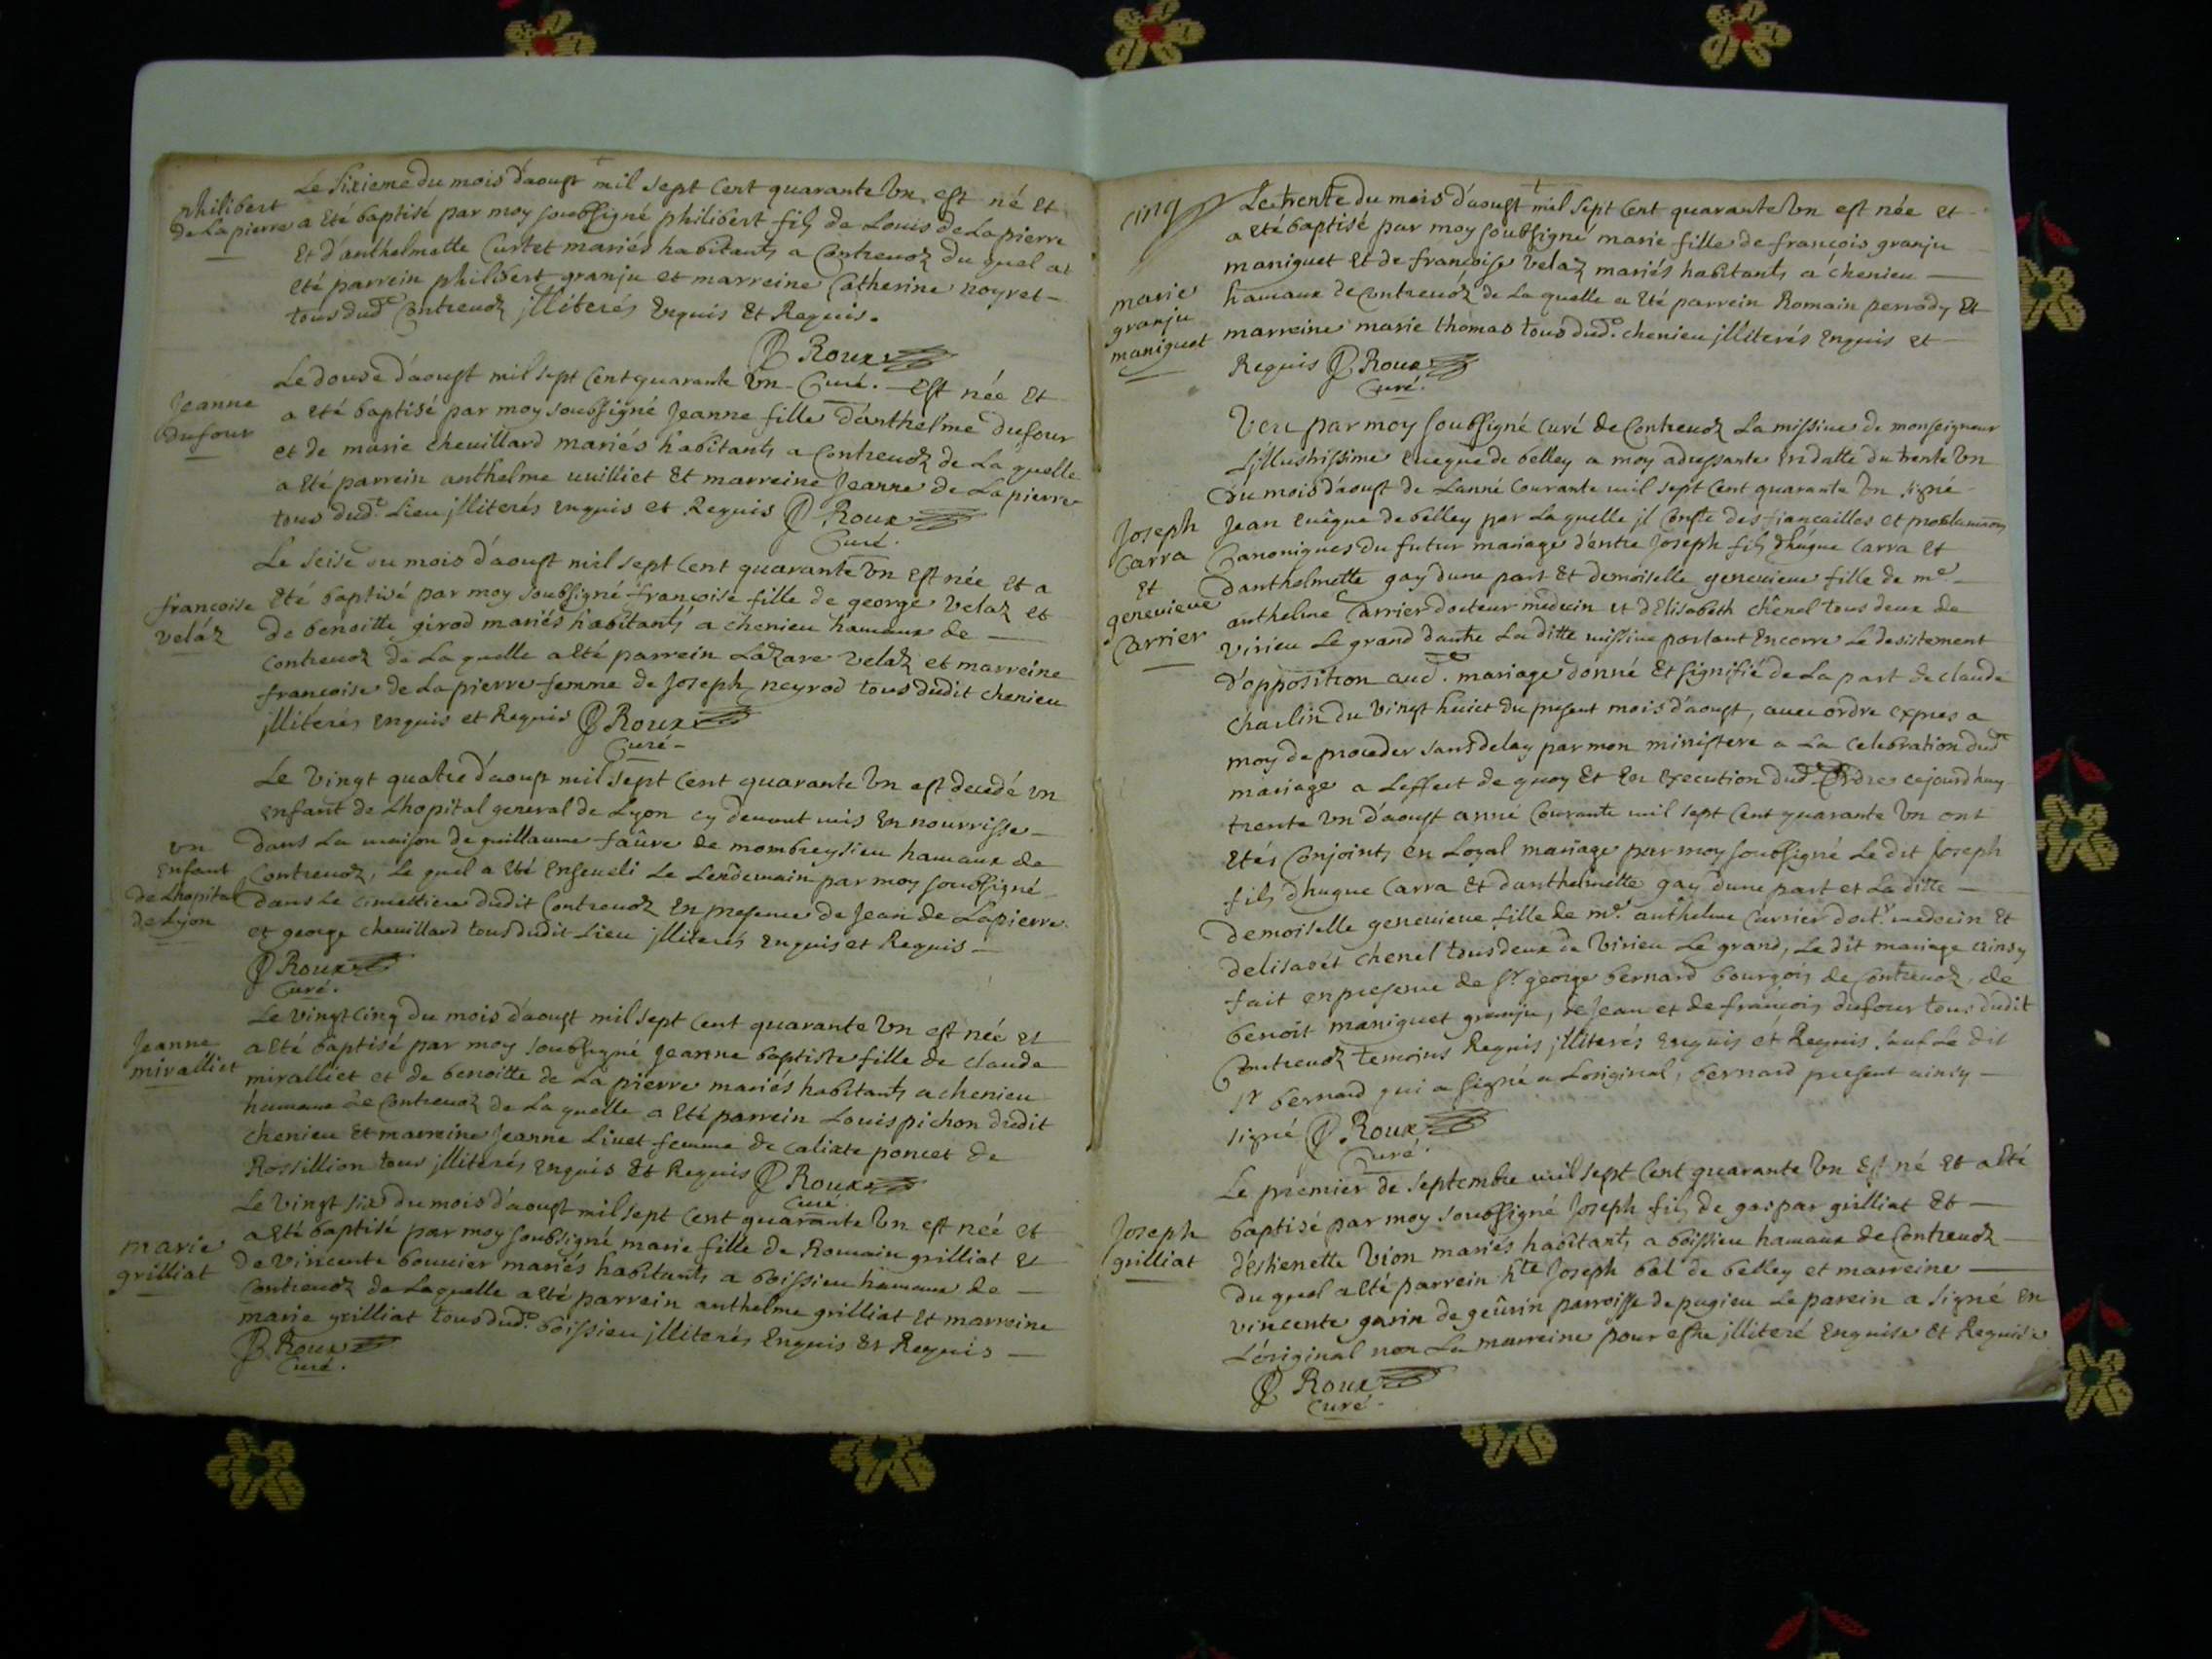 Le sixieme du mois d'aoust mil sept cent quarante un est né et
philibert
de La pierre
a été baptisé par moy soubsigné philibert fils de Louis de La pierre
et d'anthelmette Curtet mariés habitants a Contrevoz du quel at
été parrein philibert granju et marreine Catherine noyret
tous dud. Contrevoz jlliterés Enquis Et Requis.
Roux
Curé.
Le douse d'aoust mil sept cent quarante un est née et
Jeanne
dufour
a eté baptisé par moy soubsigné Jeanne fille d'anthelme dufour
et de marie chevillard mariés habitants a Contrevoz de La quelle
a eté parrein anthelme uuilliet et marreine Jeanne de La pierre
tous dud. Lieu jlliterés enquis et Requis Roux
Curé.
Le seise du mois d'aoust mil sept cent quarante un est née et a
françoise
veláz
eté baptisé par moy soubsigné françoise fille de george velaz et
de benoitte girod mariés habitants a chenieu hamaux de
contrevoz de La quelle a eté parrein Lazare velaz et marreine
françoise de La pierre femme de Joseph neyrod tous dudit chenieu
jlliterés enquis et Requis Roux
Curé
Le vingt quatre d'aoust mil sept cent quarante un est decedé un
enfant de Lhopital general de Lyon cy devant mis en nourrisse
un
Enfant
de Lhopital
de Lyon
dans La maison de guillaume faûre de mombreysieu hamaux de
Contrevoz, Le quel a eté enseveli Le Lendemain par moy soubsigné
dans Le cimettiere dudit Contrevoz en presence de Jean de Lapierre
et george chevillard tous dudit Lieu jlliterés enquis et Requis
Roux
Curé.
Le vingt cinq du mois d'aoust mil sept cent quarante un est née et
Jeanne
miralliet
a eté baptisé par moy soubsigné Jeanne baptiste fille de claude
miralliet et de benoitte de La pierre mariés habitants a chenieu
hamaux de Contrevoz de La quelle a eté parrein Louis pichon dudit
chenieu et marreine Jeanne Livet femme de calixte poncet de
Rossillion tous jlliterés enquis et Requis Roux
Curé
Le vingt six du mois d'aoust mil sept cent quarante un est neé et
marie
grilliat
a eté baptisé par moy soubsigné marie fille de Romain grilliat et
de vincente bouvier mariés habitants a boissieu hamaux de
Contrevoz de Laquelle a eté parrein anthelme grilliat et marreine
marie grilliat tous dud. boissieu jlliterés Enquis et Requis
Roux
Curé.
cinq
Le trente du mois d'aoust mil sept cent quarante un est née et
a eté baptisé par moy soubsigné marie fille de françois granju
maniguet et de françoise velaz mariés habitants a chenieu
marie
granju
maniguet
hamaux de Contrevoz de La quelle a eté parrein Romain perrody et
marreine marie thomas tous dud. chenieu jlliterés enquis et
Requis Roux
Curé.
Veu par moy soubsigné curé de Contrevoz La missive de monseigneur
Lillustrissime eveque de belley a moy adressante en datte du trente un
du mois d'aoust de Lanné Courante mil sept cent quarante un signé
Joseph
Carra
Et
genevieve
Carrier
Jean evêque de belley par La quelle jl conste des fiançailles et
Canoniques du futur mariage d'entre Joseph fils d'hugue Carra et
danthelmette gay dune part et demoiselle genevieve fille de me.
anthelme Carrier docteur medecin et d'Elisabeth chênel tous deux de
virieu Le grand d'autre La ditte missive portant encorre Le desistement
d'opposition aud. mariage donné et signifié de La part de claude
charlin du vingt huict du present mois d'aoust, avec ordre expres a
moy de proceder sans delay par mon ministere a La celebration dud.
mariage a Leffect de quoy et en execution dud. ordre cejourdhuy
trente un d'aoust anné Courante mil sept cent quarante un ont
etés conjoints en Loyal mariage par moy soubsigné Le dit Joseph
fils dhugue Carra et danthelmette gay dune part et La ditte
demoiselle genevieve fille de me. anthelme Carrier doctr. medecin et
delisabét chênel tous deux de virieu Le grand, Le dit mariage ainsy
fait en presence de sr. george bernard bourgois de Contrevoz, de
benoit maniguet granju, de Jean et de françois dufour tous dudit
Contrevoz temoins Requis jlliterés enquis et Requis sauf Le dit
sr bernard qui a signé a Loriginal, bernard present ainsy
signé Roux
Curé.
Le premier de septembre mil sept cent quarante un est né et a eté
Joseph
grilliat
baptisé par moy soubsigné Joseph fils de gaspar grilliat et
d'estienette vion mariés habitants a boissieu hamaux de Contrevoz
du quel a eté parrein hte Joseph bal de belley et marreine
vincente garin de geûrin parroisse de pugieu Le parein a signé en
L'original non La marreine pour estre jlliteré Enquise et Requise
Roux
Curé.